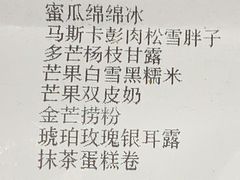 蜜瓜绵绵冰
马斯卡彭肉松雪胖子
多芒杨枝甘露
芒果白雪黑糯米
芒果双皮奶
金芒捞粉
琥珀玫瑰银耳露
抹茶蛋糕卷